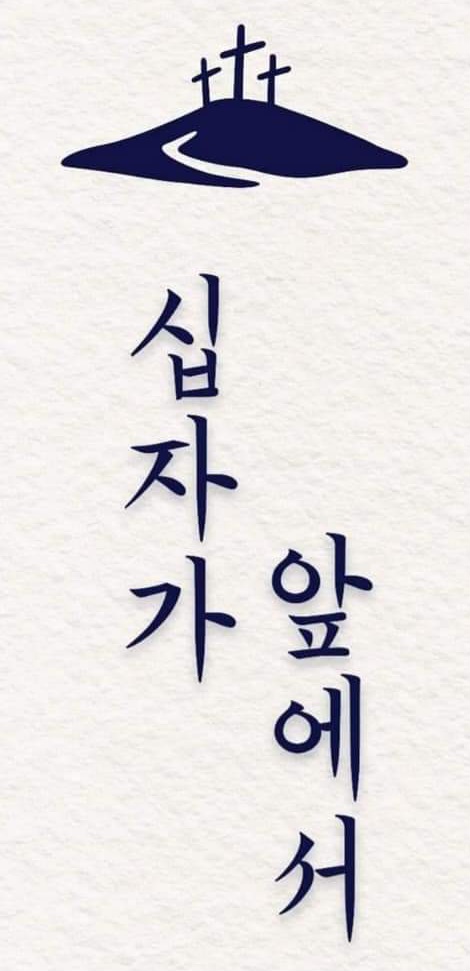 십자가
앞에서